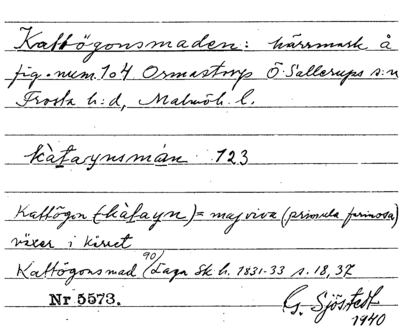 Kattögonsmaden: kärrmark å
fig. num. 104 Ormastorp Ö. Sallerups s:n
Frosta h:d, Malmöh. l.
kàtaynsmán 123
Kattögon (kàtayn) = majviva (primula farinosa)
växer i kärret
90/
Kattögonsmad Laga Sk h. 1831-33 s. 18, 37
Nr 5573.
G. Sjöstedt
1940